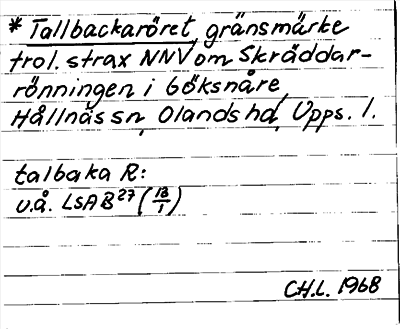 * Tallbackaröret, gränsmärke
trol. strax NNV om Skräddar-
rönningen i Böksnåre,
Hållnäs sn, Olands hd, Upps. l.
talbaka R:
u.å. LSA B²⁷ (18/1)
CH.L. 1968